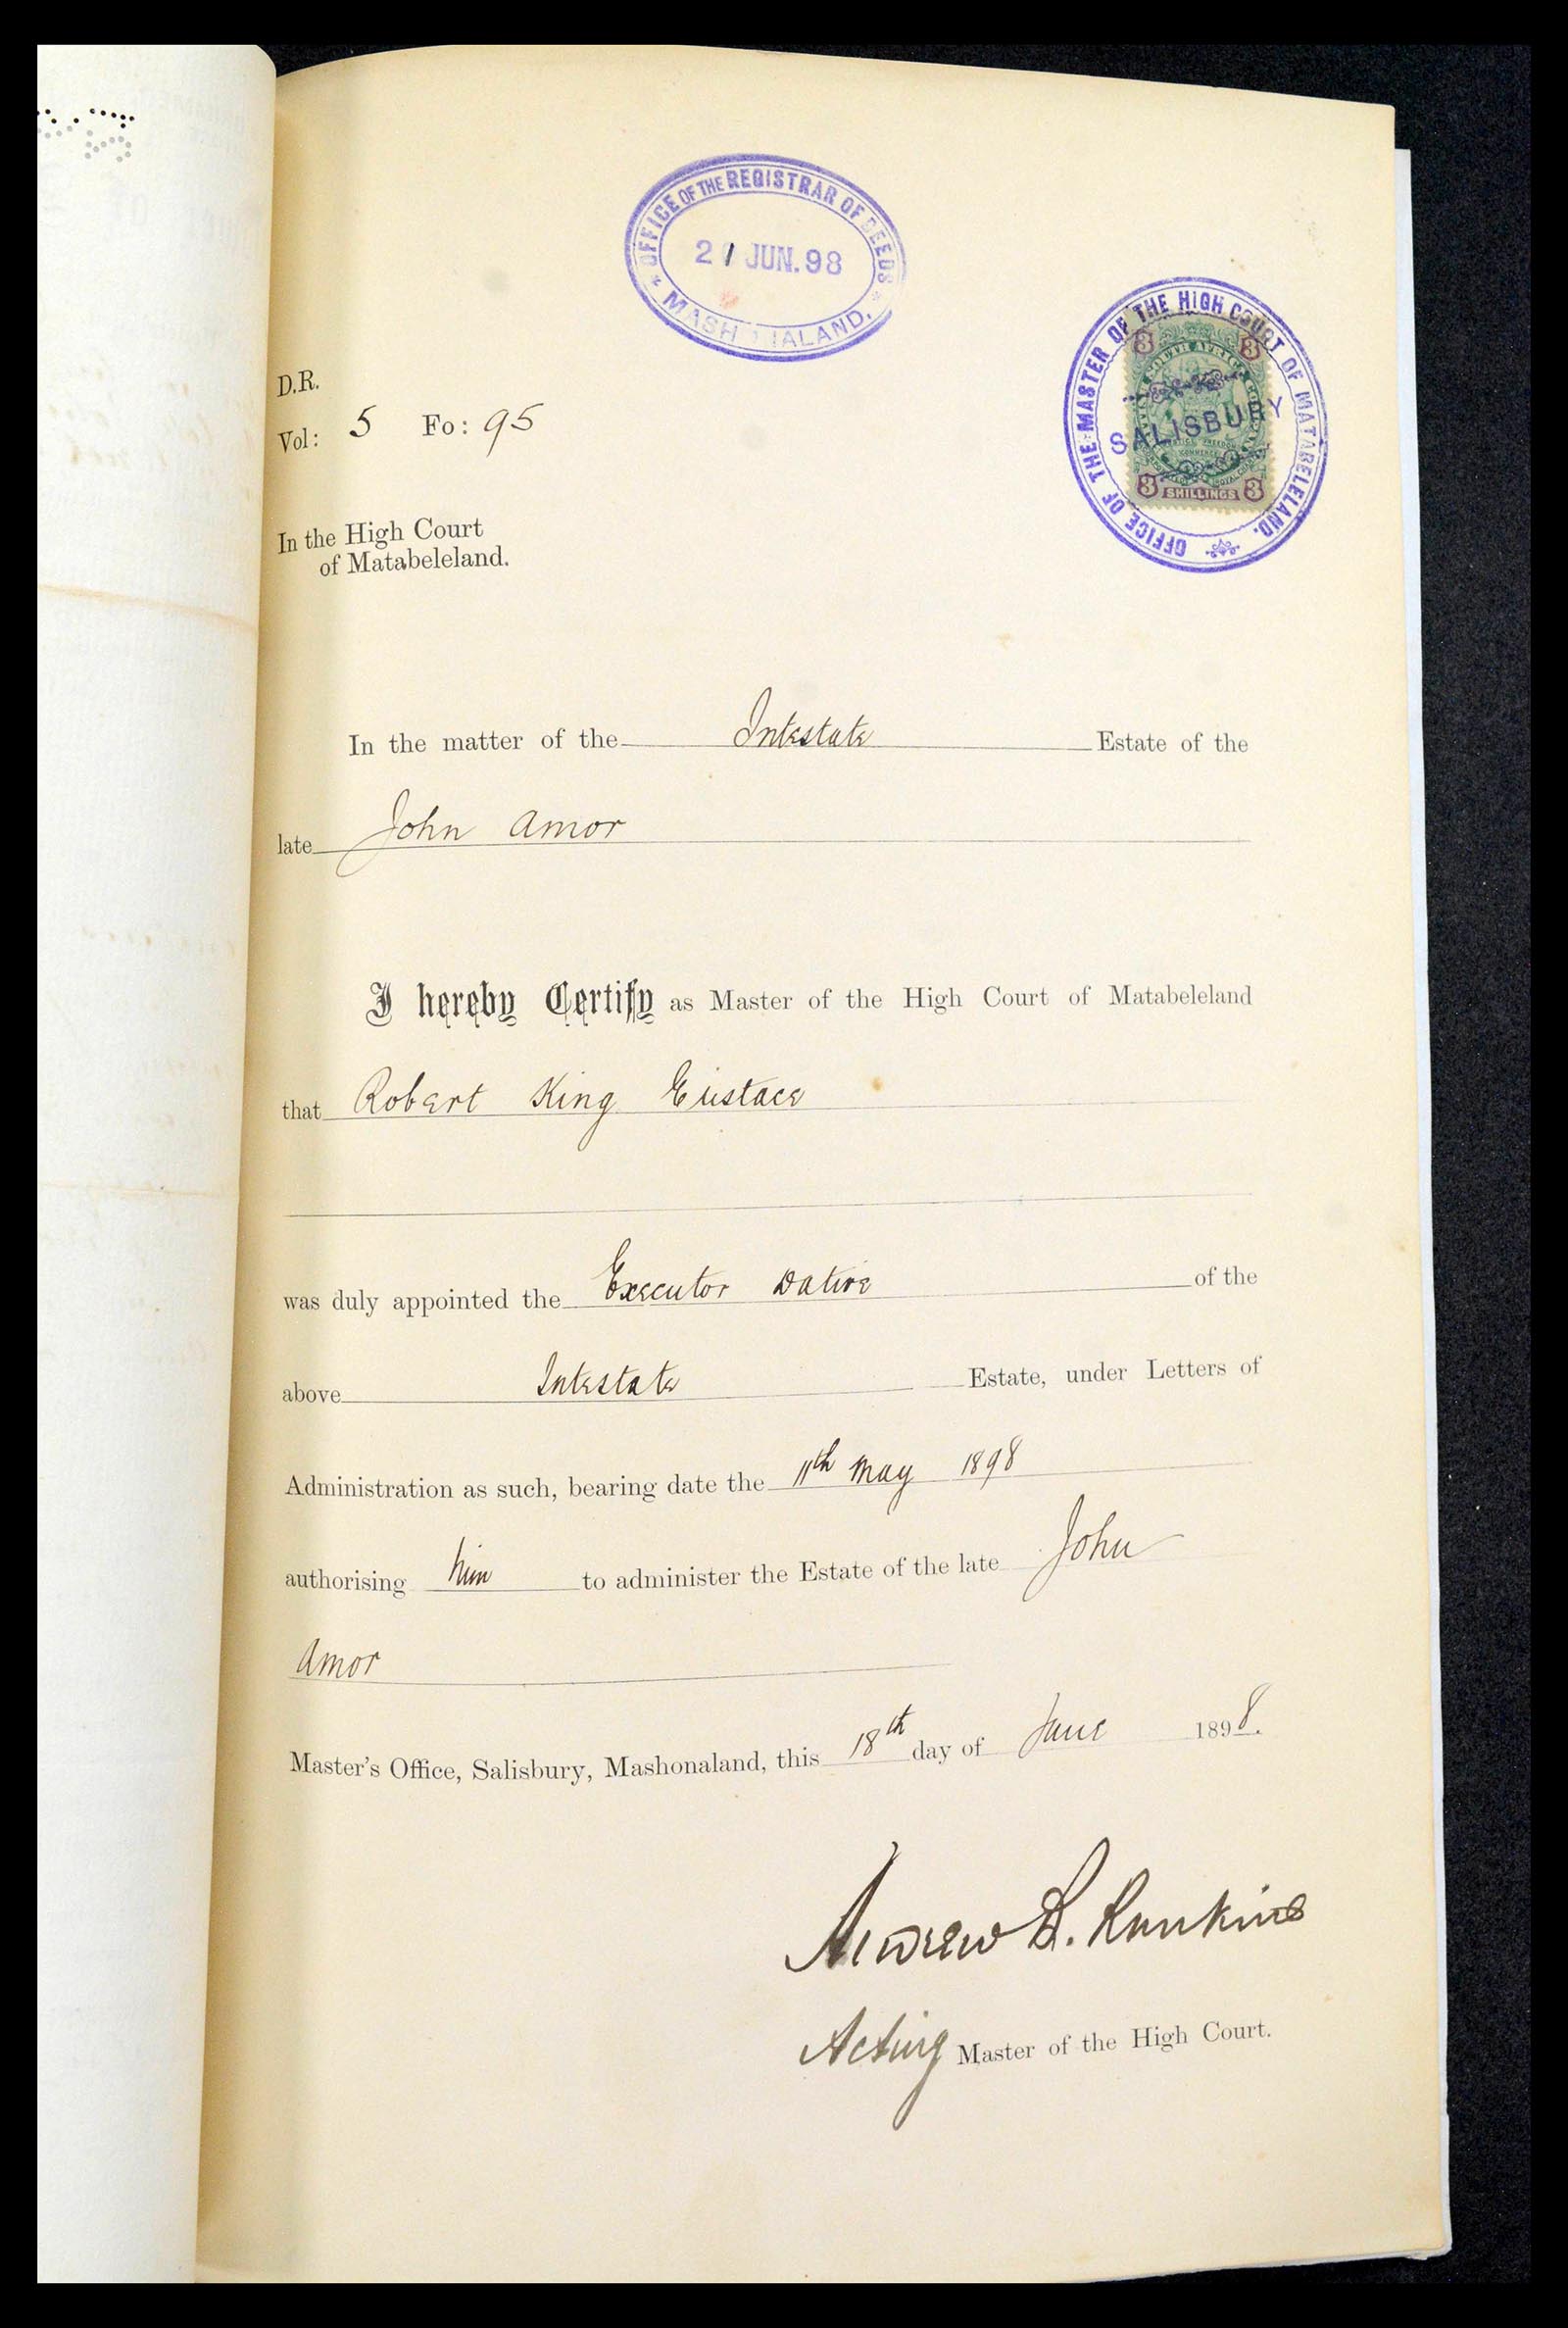 OFFICE OF THE REGISTRAR OF DEEDS
21 JUN. 98
MASHONALAND.
OFFICE OF THE MASTER OF THE HIGH COURT OF MATABELELAND.
SALISBURY
3 3
SOUTH AFRICA
JUSTICE FREEDOM
COMMERCE
3 SHILLINGS 3
D.R.
Vol: 5 Fo: 95
In the High Court
of Matabeleland.
In the matter of the Intestate Estate of the
late John Amor
I hereby Certify as Master of the High Court of Matabeleland
that Robert King Eustace
was duly appointed the Executor Dative of the
above Intestate Estate, under Letters of
Administration as such, bearing date the 11th May 1898
authorising him to administer the Estate of the late John
Amor
Master's Office, Salisbury, Mashonaland, this 18th day of June 1898.
Andrew B. Rankine
Acting Master of the High Court.